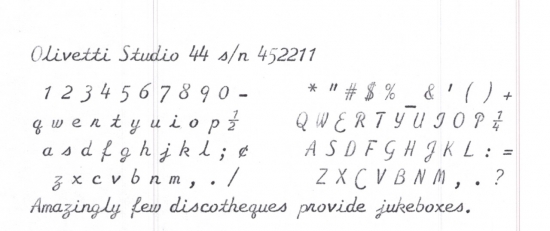 Olivetti Studio 44 s/n 452211
1 2 3 4 5 6 7 8 9 0 - * " # $ % _ & ' ( ) +
q w e r t y u i o p ½ Q W E R T Y U I O P ¼
a s d f g h j k l ; ¢ A S D F G H J K L : =
z x c v b n m , . / Z X C V B N M , . ?
Amazingly few discotheques provide jukeboxes.